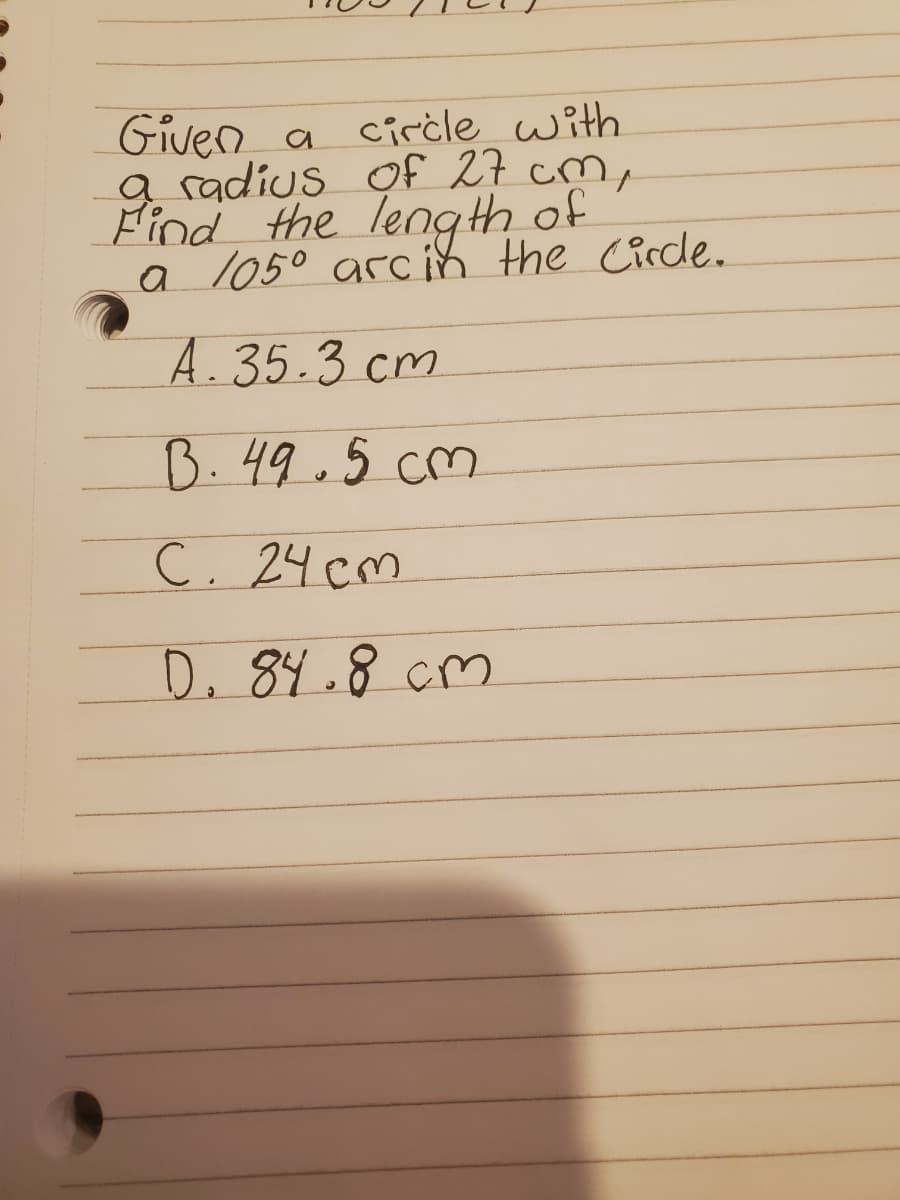 Given a circle with
a radius of 27 cm,
Find the length of
a 105° arc in the circle.
A. 35.3 cm
B. 49.5 cm
C. 24 cm
D. 84.8 cm